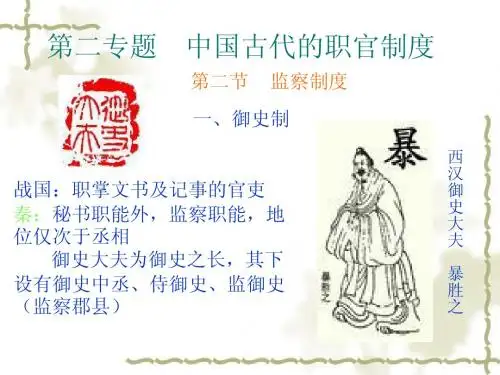 第二专题 中国古代的职官制度
第二节 监察制度
一、御史制
御史大夫
战国：职掌文书及记事的官吏
秦：秘书职能外，监察职能，地
位仅次于丞相
御史大夫为御史之长，其下
设有御史中丞、侍御史、监御史
（监察郡县）
暴
暴胜之
西汉御史大夫 暴胜之